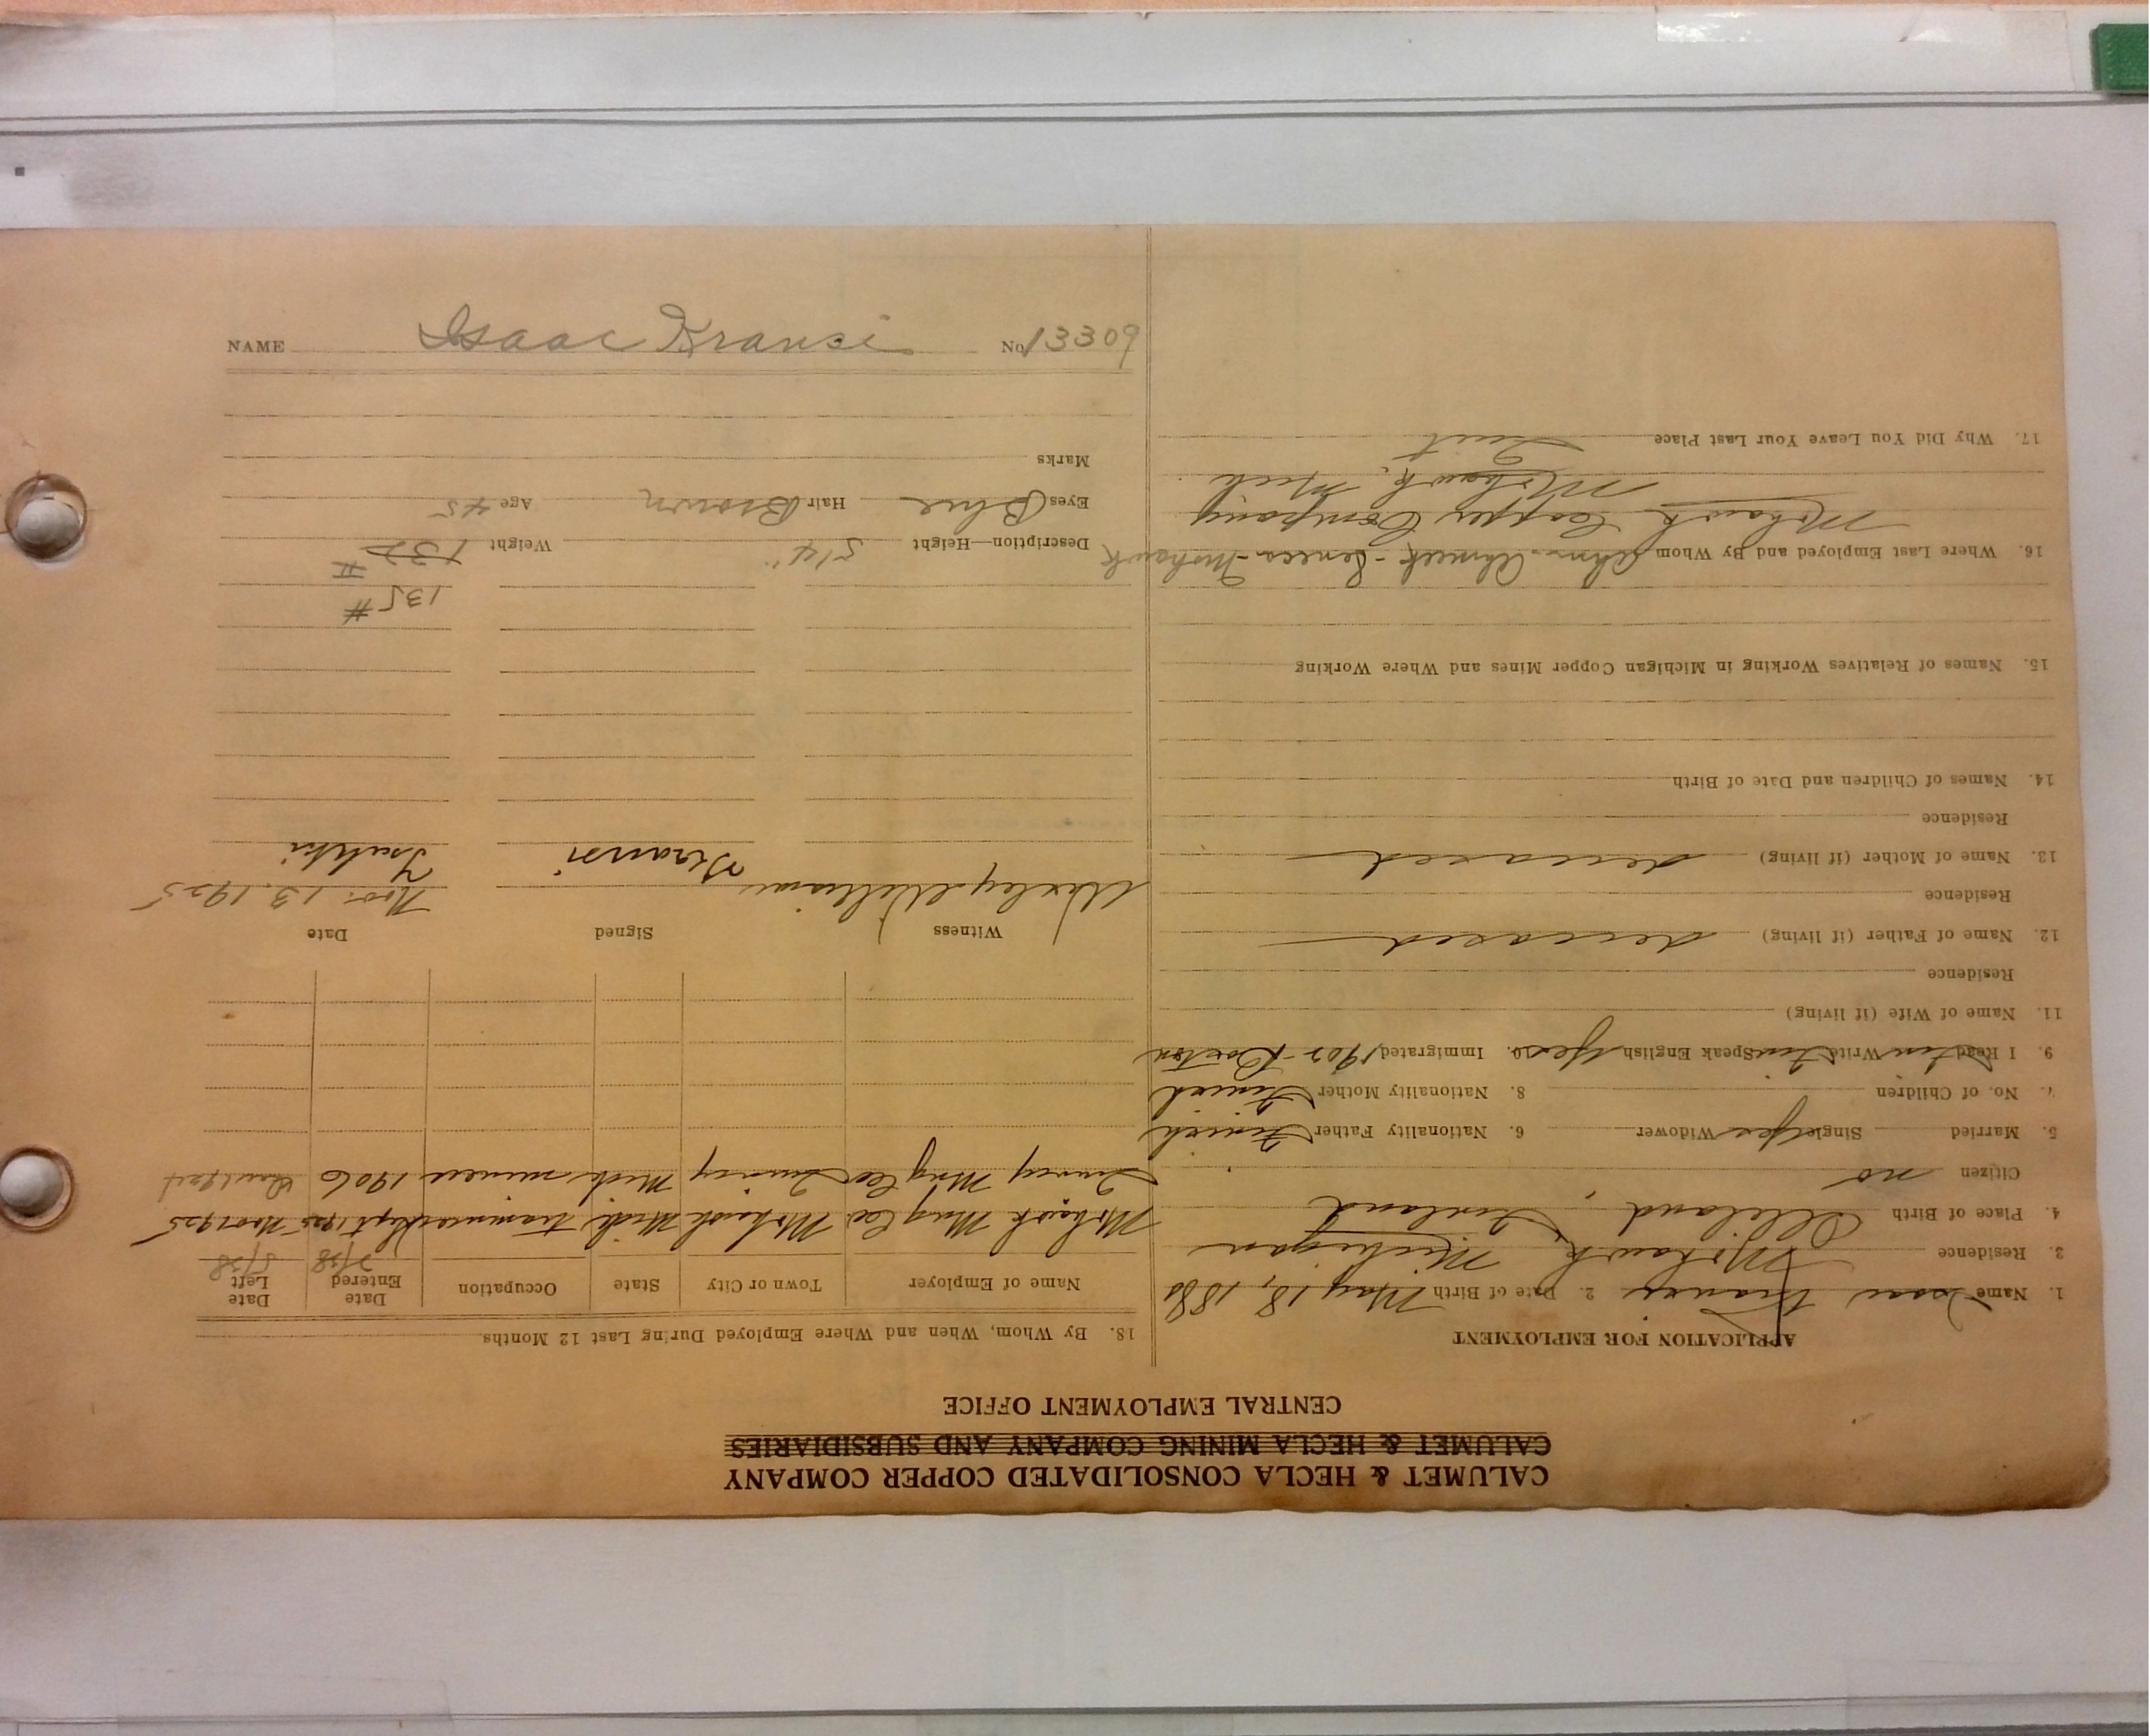 CALUMET & HECLA CONSOLIDATED COPPER COMPANY
CALUMET & HECLA MINING COMPANY AND SUBSIDIARIES
CENTRAL EMPLOYMENT OFFICE
APPLICATION FOR EMPLOYMENT
1. Name Isaac Kransi 2. Date of Birth May 18, 1880
3. Residence Mohawk Michigan
4. Place of Birth Finland
Citizen no
5. Married Single yes Widower 6. Nationality Father Finish
7. No. of Children 8. Nationality Mother Finish
9. I Read Write Speak English yes 10. Immigrated 1902 - Boston
11. Name of Wife (if living)
Residence
12. Name of Father (if living) deceased
Residence
13. Name of Mother (if living) deceased
Residence
14. Names of Children and Date of Birth
15. Names of Relatives Working in Michigan Copper Mines and Where Working
16. Where Last Employed and By Whom Ahmeek - Seneca - Mohawk
Mohawk Copper Company
Mohawk, Mich
17. Why Did You Leave Your Last Place Quit
18. By Whom, When and Where Employed During Last 12 Months
Name of Employer Town or City State Occupation Date Entered Date Left
Mohawk Mng Co Mohawk Mich trammer Sept 1925 Nov 1925
Quincy Mng Co Quincy Mich miner 1906
Witness Signed Date
Williams Kransi Nov. 13, 1925
135 #
Description—Height 5'4" Weight 132 #
Eyes Blue Hair Brown Age 45
Marks
NAME Isaac Kransi No. 13309